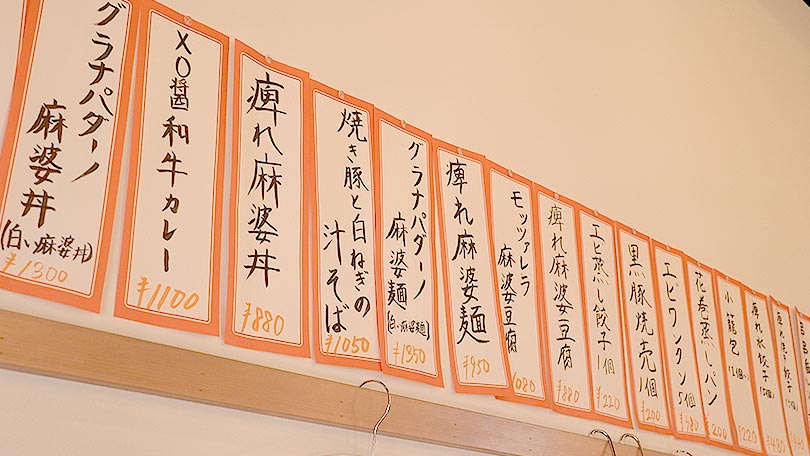 グラナパダーノ
麻婆丼
(白い麻婆丼)
¥1300
XO醤和牛カレー
¥1100
痺れ麻婆丼
¥880
焼き豚と白ねぎの
汁そば
¥1050
グラナパダーノ
麻婆麺
(白い麻婆麺)
¥1350
痺れ麻婆麺
¥950
モッツァレラ
麻婆豆腐
¥1080
痺れ麻婆豆腐
¥880
エビ蒸し餃子
1個
¥220
黒豚焼売
1個
¥200
エビワンタン
5個
¥580
花巻蒸しパン
¥200
小籠包
¥220
痺れ水餃子
¥430
痺れ焼き餃子